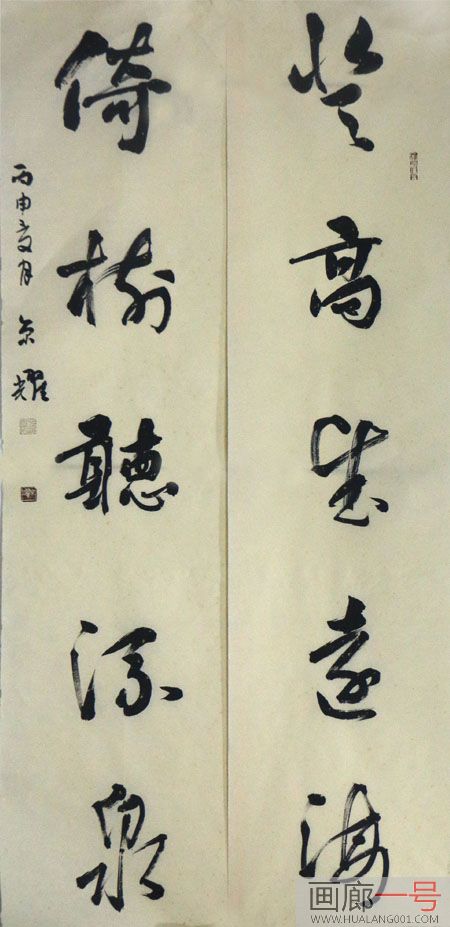 登高望遠海
倚樹聽流泉
丙申夏月 京耀
画廊一号
WWW.HUALANG001.COM